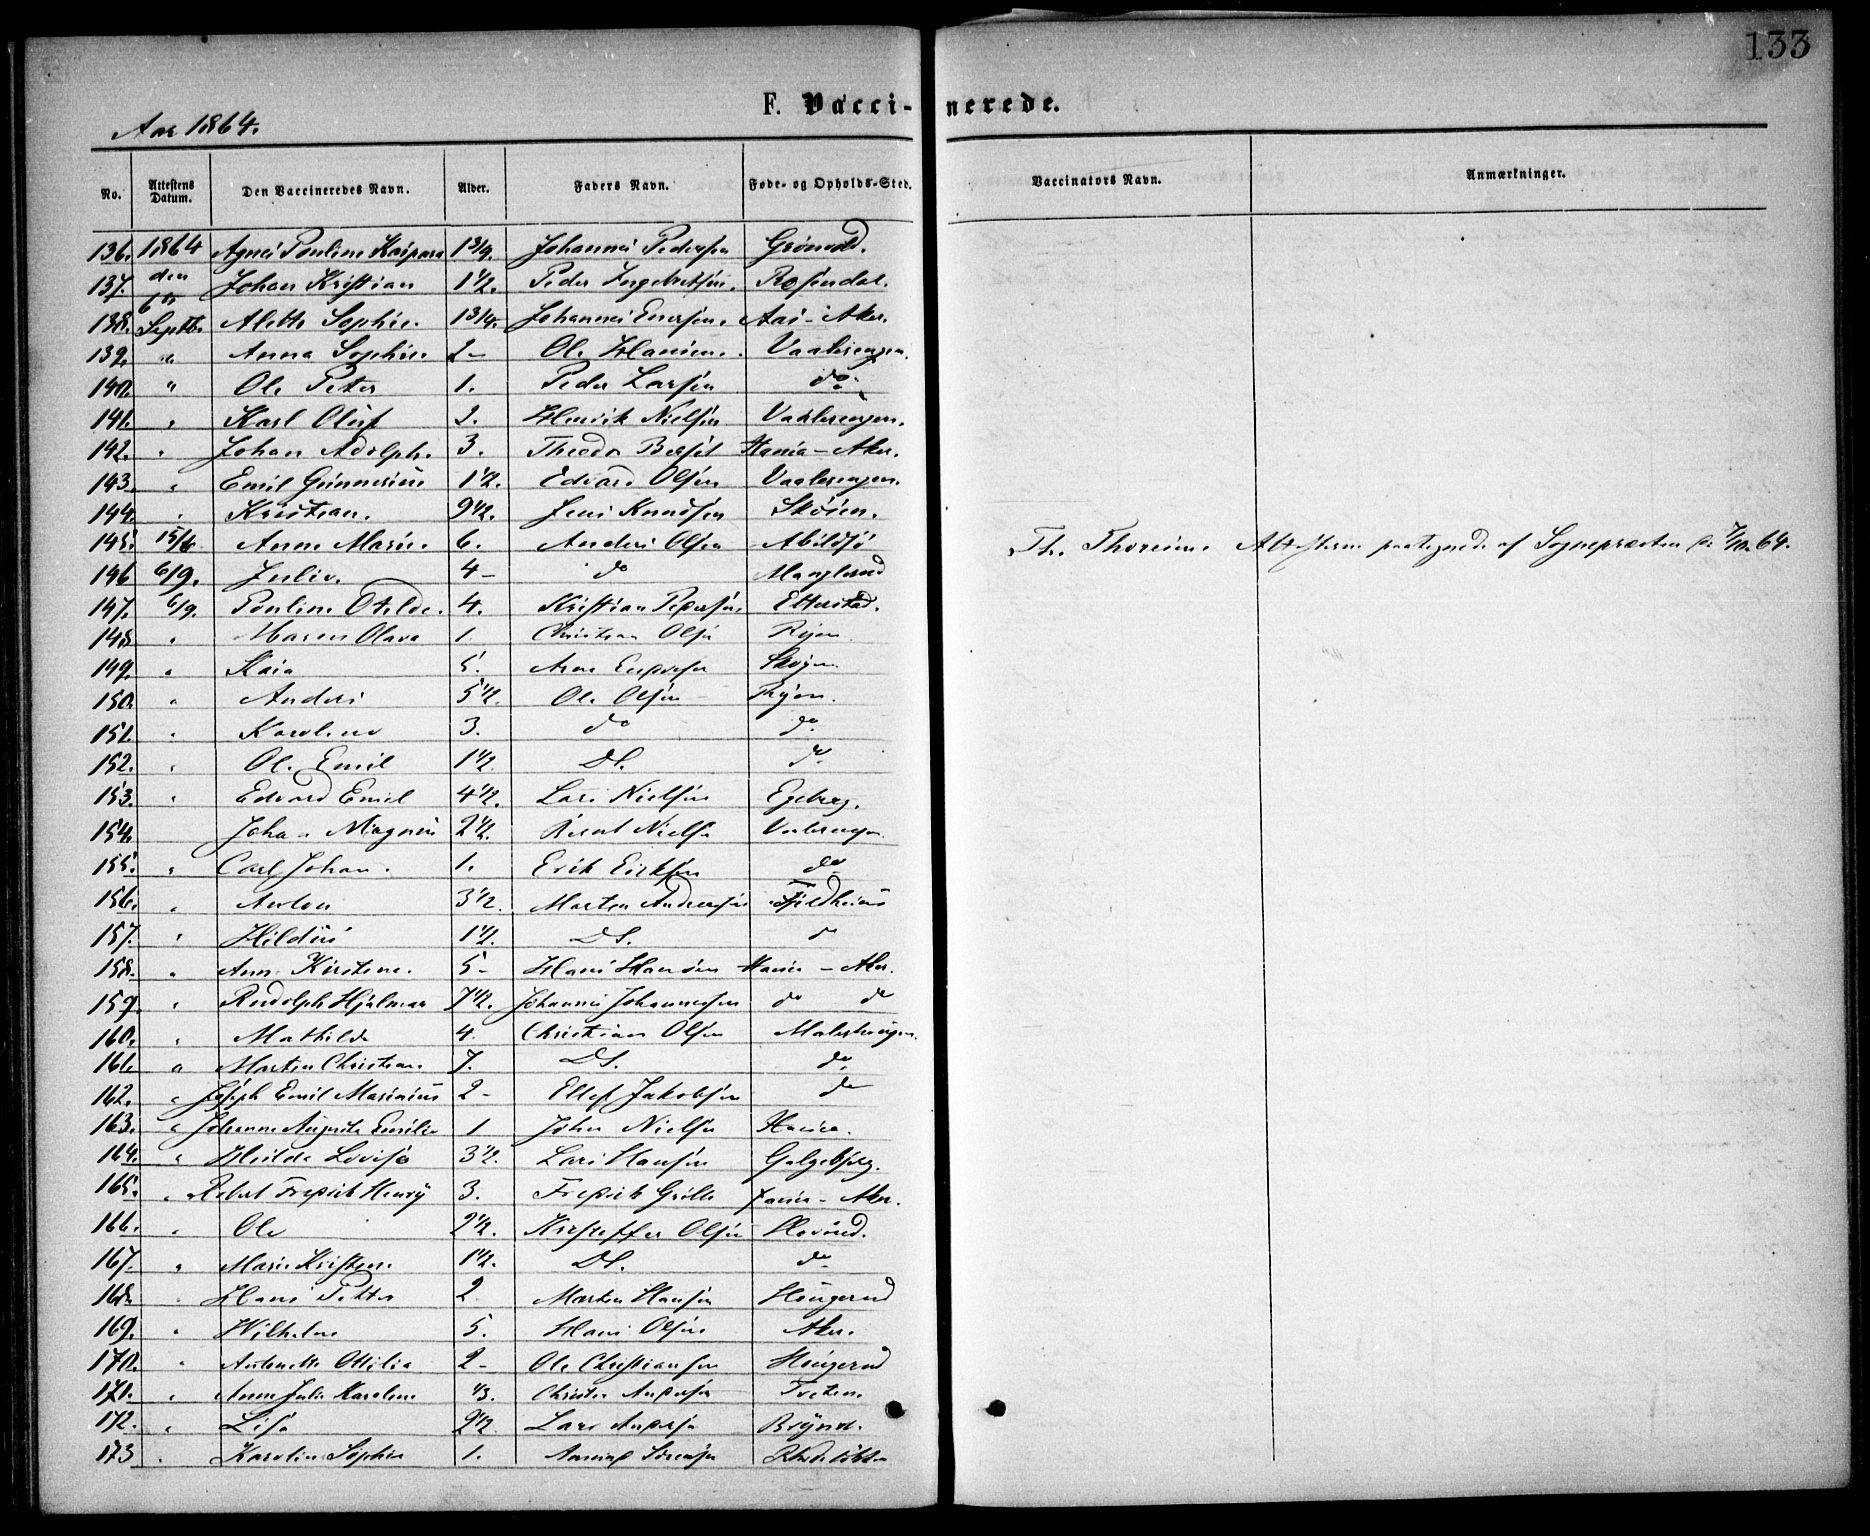 133
F. Vacci-nerede.
Aar 1864.
No. Attestens Datum. Den Vaccineredes Navn. Alder. Faders Navn. Føde- og Opholds-Sted. Vaccinators Navn. Anmærkninger.
136. 1864 Agnes Pauline Kaspara 1 3/4. Johannes Pedersen
137. den Johan Kristian 1 1/2. Peder Ingebretsen. Rosendal.
138. 6te Septbr Alette Sophie. 1 3/4. Johannes Aas-Aker.
139. " Anna Sophie. 2- Ole Hansen. Vaalerengen.
140. " Ole Peter 1. Peder Larsen do.
141. " Karl Oluf 2. Henrik Nielsen Vaalerengen.
142. " Johan Adolph. 3. Theodor -Aker.
143. " Emil Gunnerius 1 1/2. Edvard Olsen Vaalerengen.
144. " Kristian. 9 1/2. Jens Knudsen Skøien.
145. 15/6. Anne Marie. 6. Anders Olsen Abildsø Th. Af Sognepræsten 64.
146 6/9. Julie. 4- do Manglerud
147. 6/9. Pauline Otilde. 4. Kristian Pedersen Etterstad.
148. " Maren Olava 1. Christian Olsen Ryen.
149. " Kaia 5. Arne Skøyen
150. " Anders 5 1/2. Ole Olsen Ryen.
151. " Karoline 3. do do.
152. " Ole Emil 1 1/2. DS. do.
153. " Edvard Emil 4 1/2. Lars Nielsen Egeberg.
154. Johan Magnus 2 1/2. Bernt Nielsen Vaalerengen
155. " Carl Johan. 1. Erik Eriksen do
156. " Anton 3 1/2. Morten Andreasen Fjeldheim
157. " 1 1/2. DS. do
158. " Anne Kirstine. 5- Hans Hansen -Aker.
159. " Rudolph Hjalmar 7 1/2. Johannes Johannesen do do
160. " Mathilde 4. Christian Olsen
161. " Morten Christian. 7. DS. do.
162. " Joseph Emil Marinius 2- Ellef Jakobsen do
163. " Johanne Augusta Emilie 1 John Nielsen
164. " Hilda Lovise 3 1/2. Lars Hansen Galgebjerg.
165. " Robert Fredrik Henry 3. Fredrik -Aker.
166. " Ole 2 1/2. Kristoffer Olsen
167. " Marie Kristine. 1 1/2. DS. do.
168. " Hans Petter 2. Morten Hansen Haugerud
169. " Wilhelm 5. Hans Olsen Aker.
170. " Antonette Ottilia 2- Ole Christiansen Haugerud
171. " Anne Julie Karoline 1/3. Andersen Tveten.
172. " Lisa 2 1/2. Lars Andersen
173 " Karoline Sophie 1. Sørensen